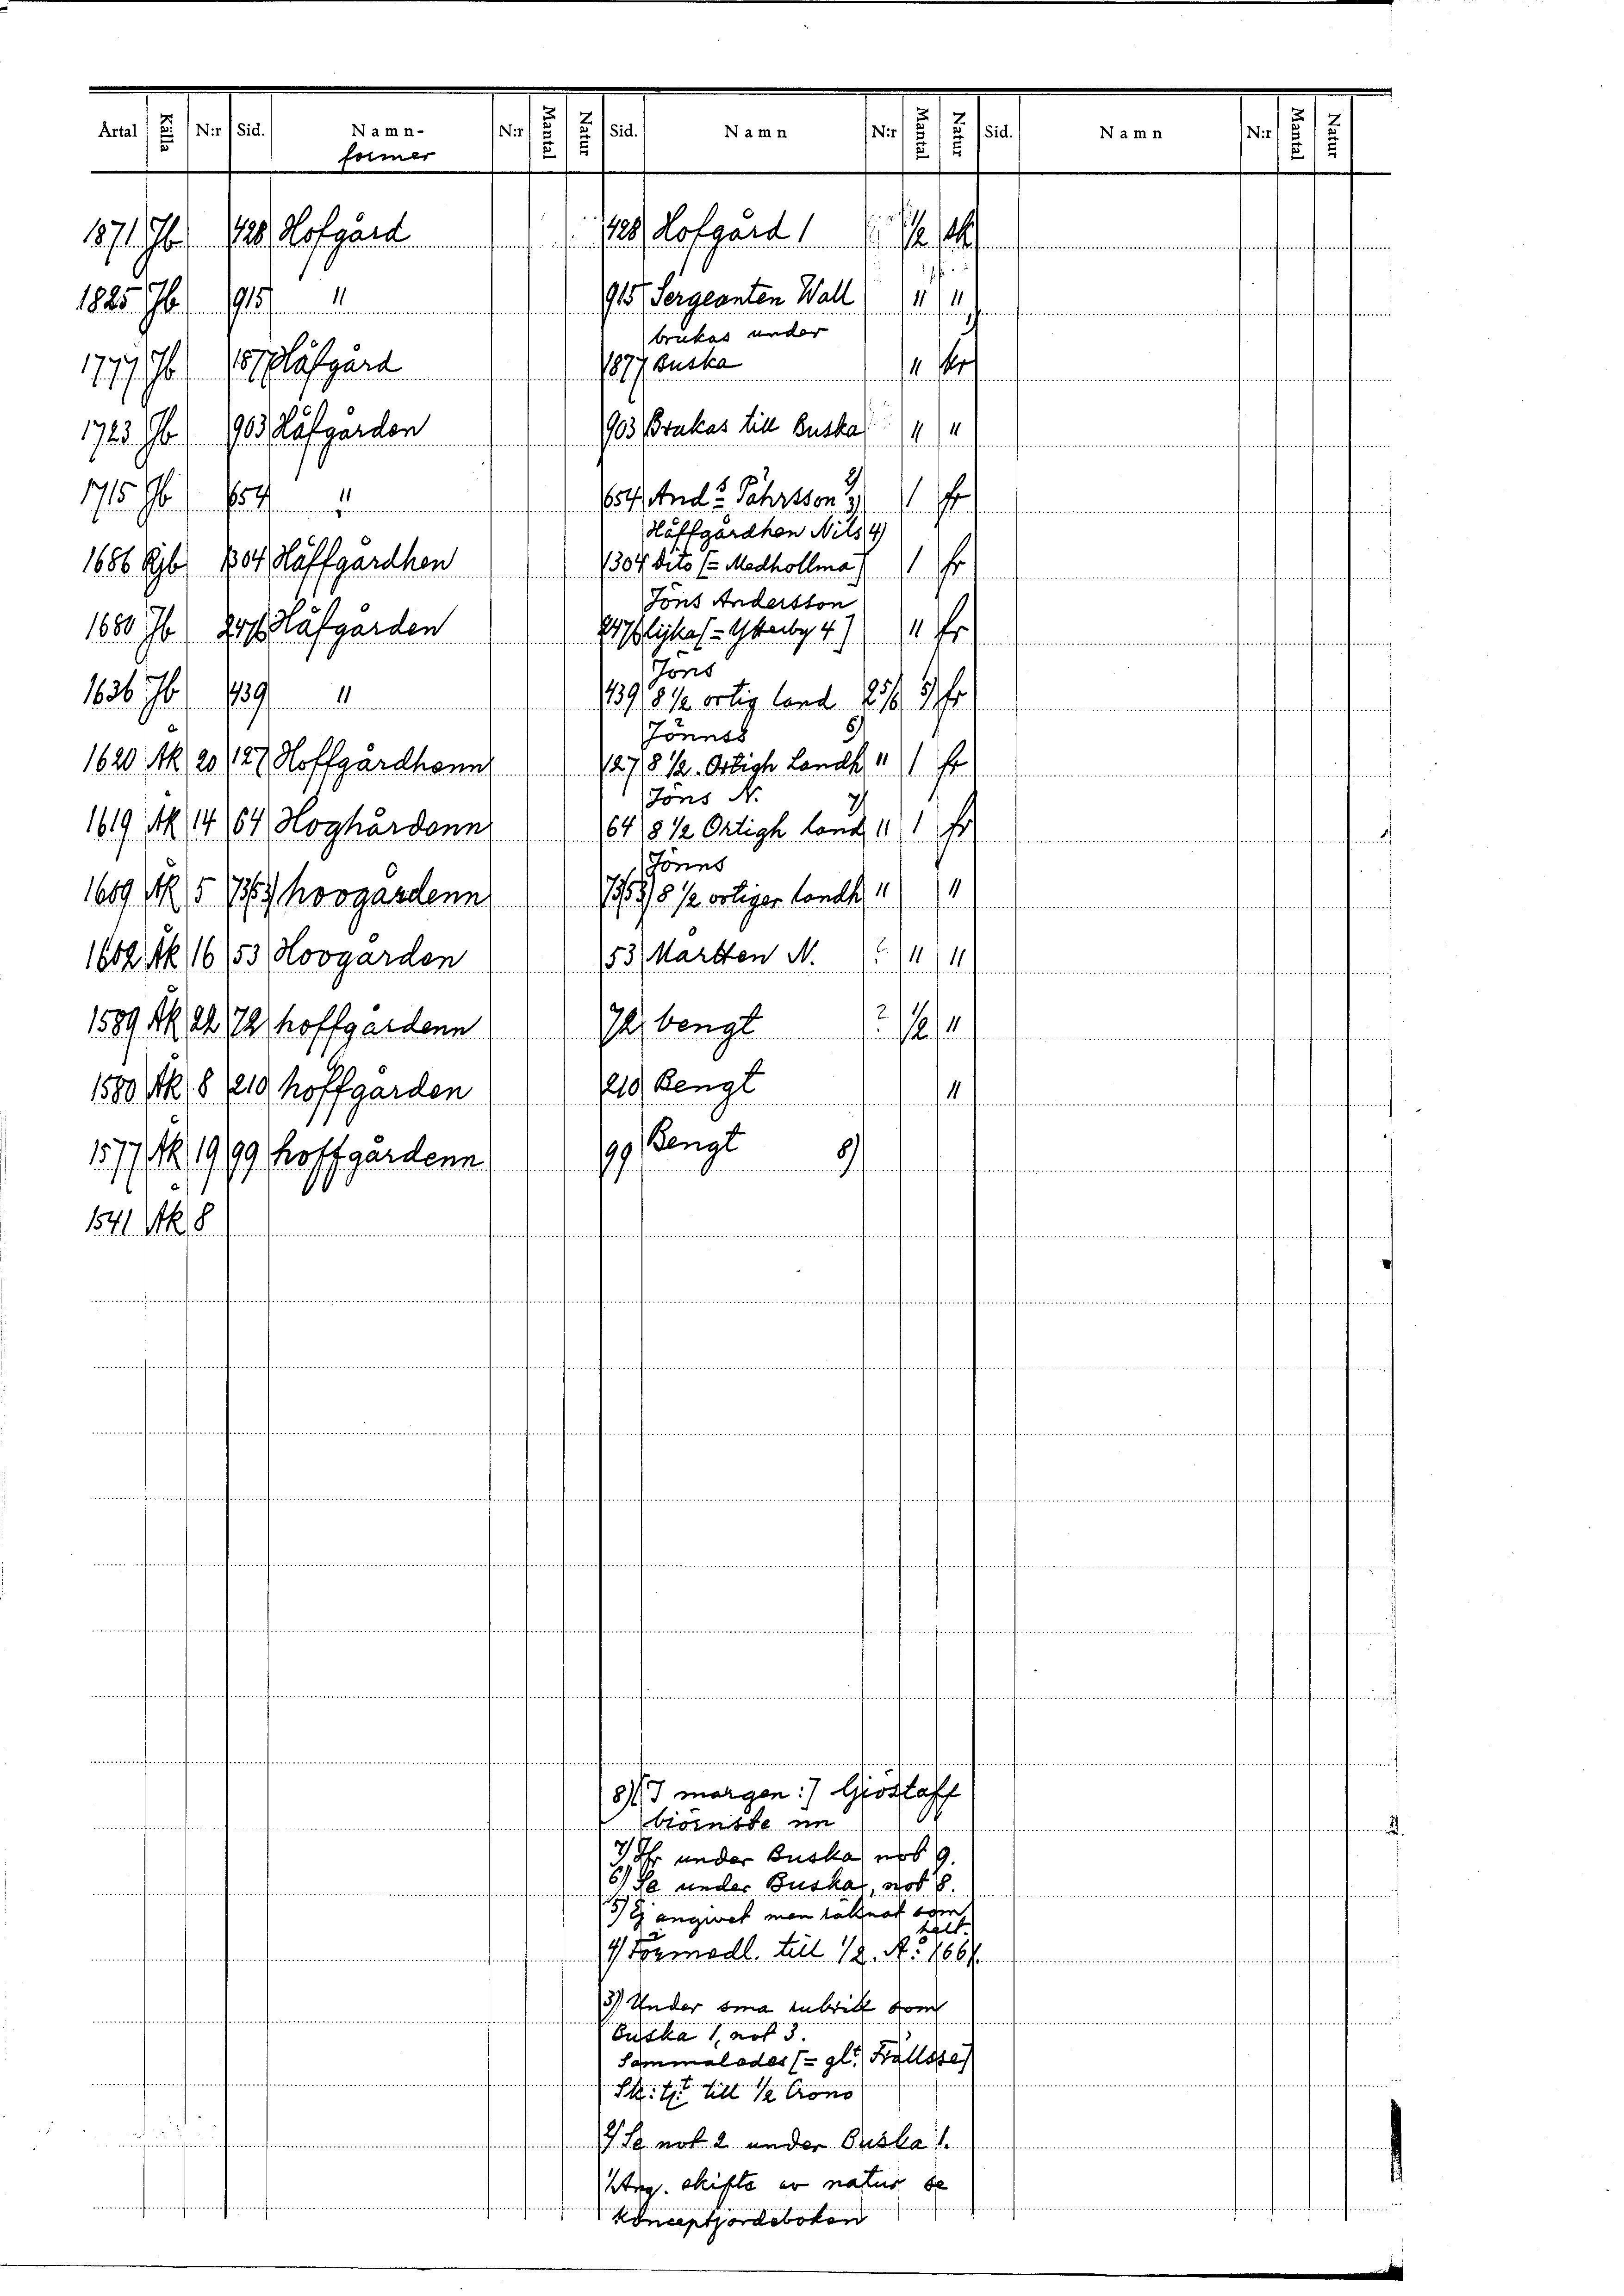 Årtal Källa N:r Sid. Namn- N:r Mantal Natur Sid. Namn N:r Mantal Natur Sid. Namn N:r Mantal Natur
former
1871 Jb 428 Hofgård 428 Hofgård 1 1/2 sk
1825 Jb 915 " 915 Sergeanten Wall " "
brukas under
1777 Jb 1877 Håfgård 1877 Buska " kr
1723 Jb 903 Håfgården 903 Brukas till Buska " "
1715 Jb 654 " 654 Ands Pährsson 2) 3) 1 fr
Håffgårdhen Nils 4)
1686 Kjb 1304 Håffgårdhen 1304 dito (= Medhollma) 1 fr
Jöns Andersson
1680 Jb 247 Håfgården 247 lijka (= Ytterby 4) " fr
Jöns
1636 Jb 439 " 439 8 1/2 örtig land 25/6 5) fr
Jönnss 6)
1620 Ak 20 127 Hoffgårdhenn 127 8 1/2. Örtigh Landh " 1 fr
Jöns N. 7)
1619 Ak 14 64 Hoghårdenn 64 8 1/2 Örtigh land " 1 fr
Jönns
1609 Ak 5 hoogårdenn 8 1/2 örtiger landh " "
1602 Ak 16 53 Hoogården 53 Martten N. ? " "
1589 Ak 22 72 hoffgårdenn 72 bengt ? 1/2 "
1580 Ak 8 210 hoffgården 210 Bengt "
1577 Ak 19 99 hoffgårdenn 99 Bengt 8)
1541 Ak 8
8) (I margen:) Giöstaff
biörnste nn
7) Jfr under Buska not 9.
6) Se under Buska, not 8.
5) Ej angivet men räknat som
helt.
4) Förmedl. till 1/2. A:o 1661
3) Under sma rubrik som
Buska 1, not 3.
Sammalades (= gl. Frällsse)
Sk: till 1/2 Crono
2) Se not 2 under Buska 1.
1) Ang. skifte av natur se
konceptjordeboken